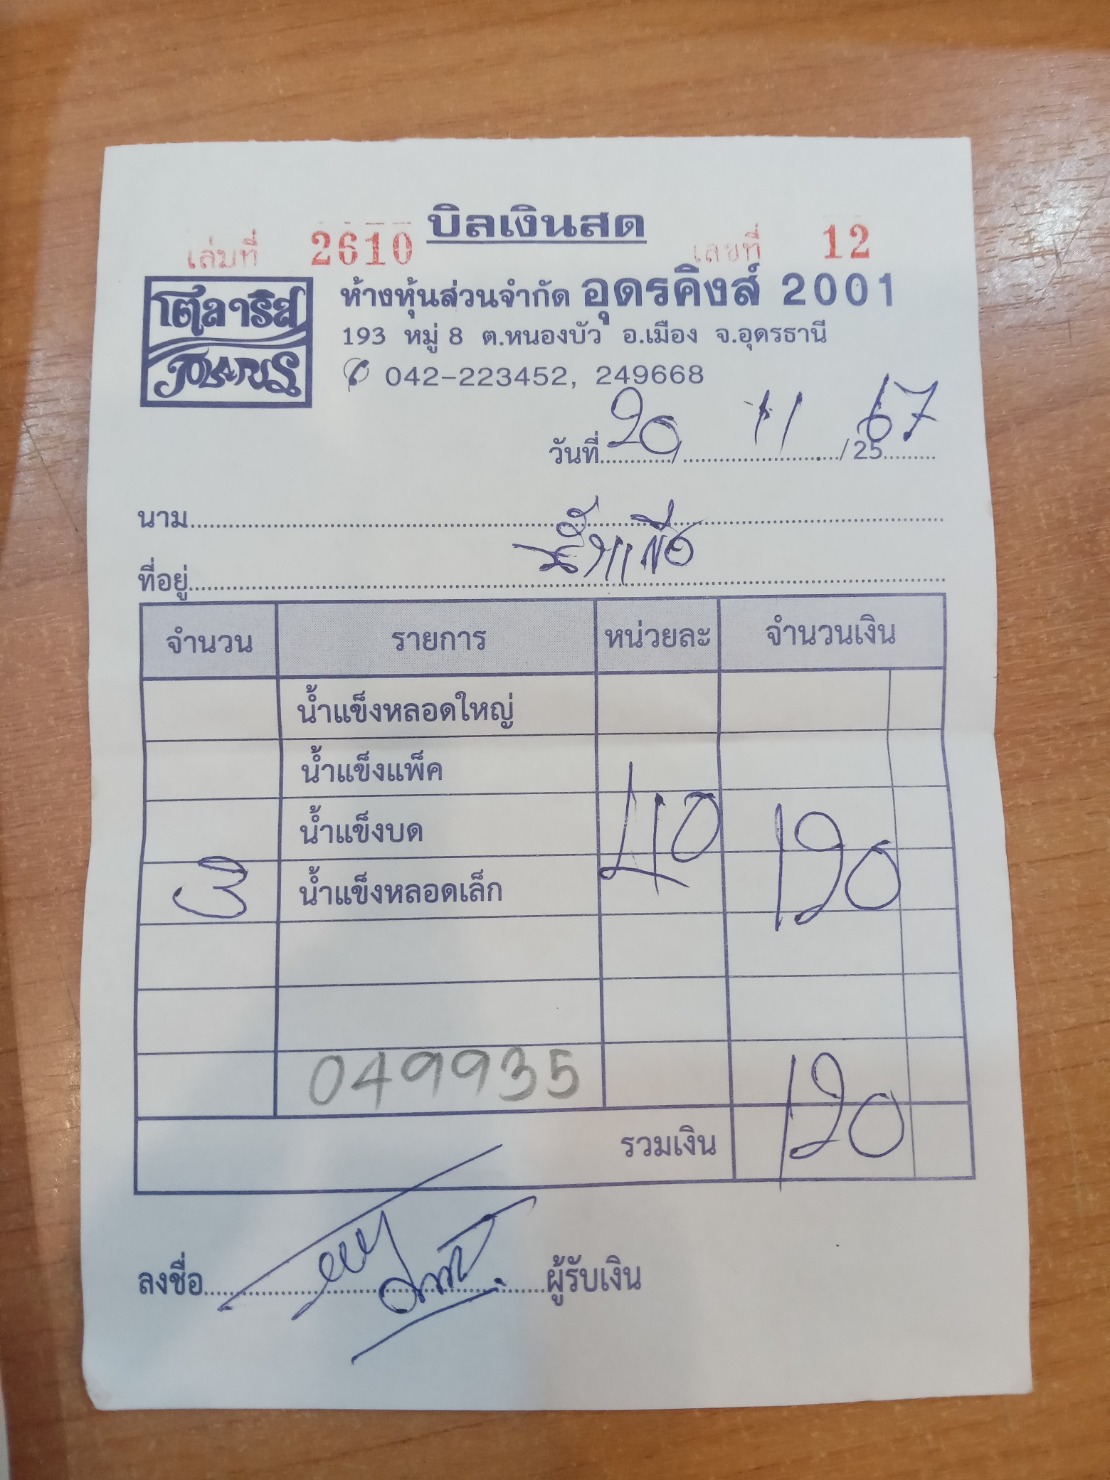 บิลเงินสด
เล่มที่ 2610 เลขที่ 12
โตลาริส
POLARIS
ห้างหุ้นส่วนจำกัด อุดรคิงส์ 2001
193 หมู่ 8 ต.หนองบัว อ.เมือง จ.อุดรธานี
042-223452, 249668
วันที่ 20 / 11 / 2567
นาม
ที่อยู่
จำนวน รายการ หน่วยละ จำนวนเงิน
น้ำแข็งหลอดใหญ่
น้ำแข็งแพ็ค
น้ำแข็งบด
3 น้ำแข็งหลอดเล็ก 40 120
049935
รวมเงิน 120
ลงชื่อ ผู้รับเงิน